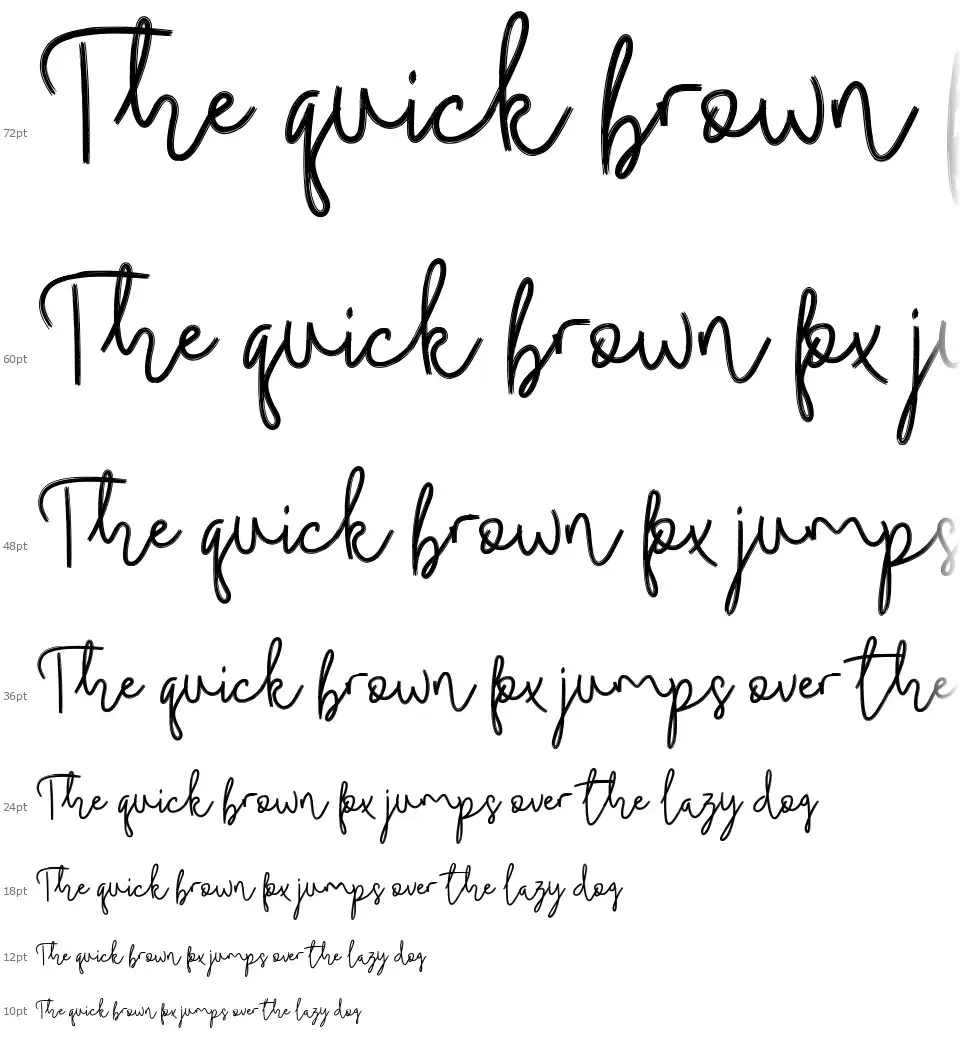 72pt The quick brown
60pt The quick brown fox ju
48pt The quick brown fox jumps
36pt The quick brown fox jumps over the
24pt The quick brown fox jumps over the lazy dog
18pt The quick brown fox jumps over the lazy dog
12pt The quick brown fox jumps over the lazy dog
10pt The quick brown fox jumps over the lazy dog